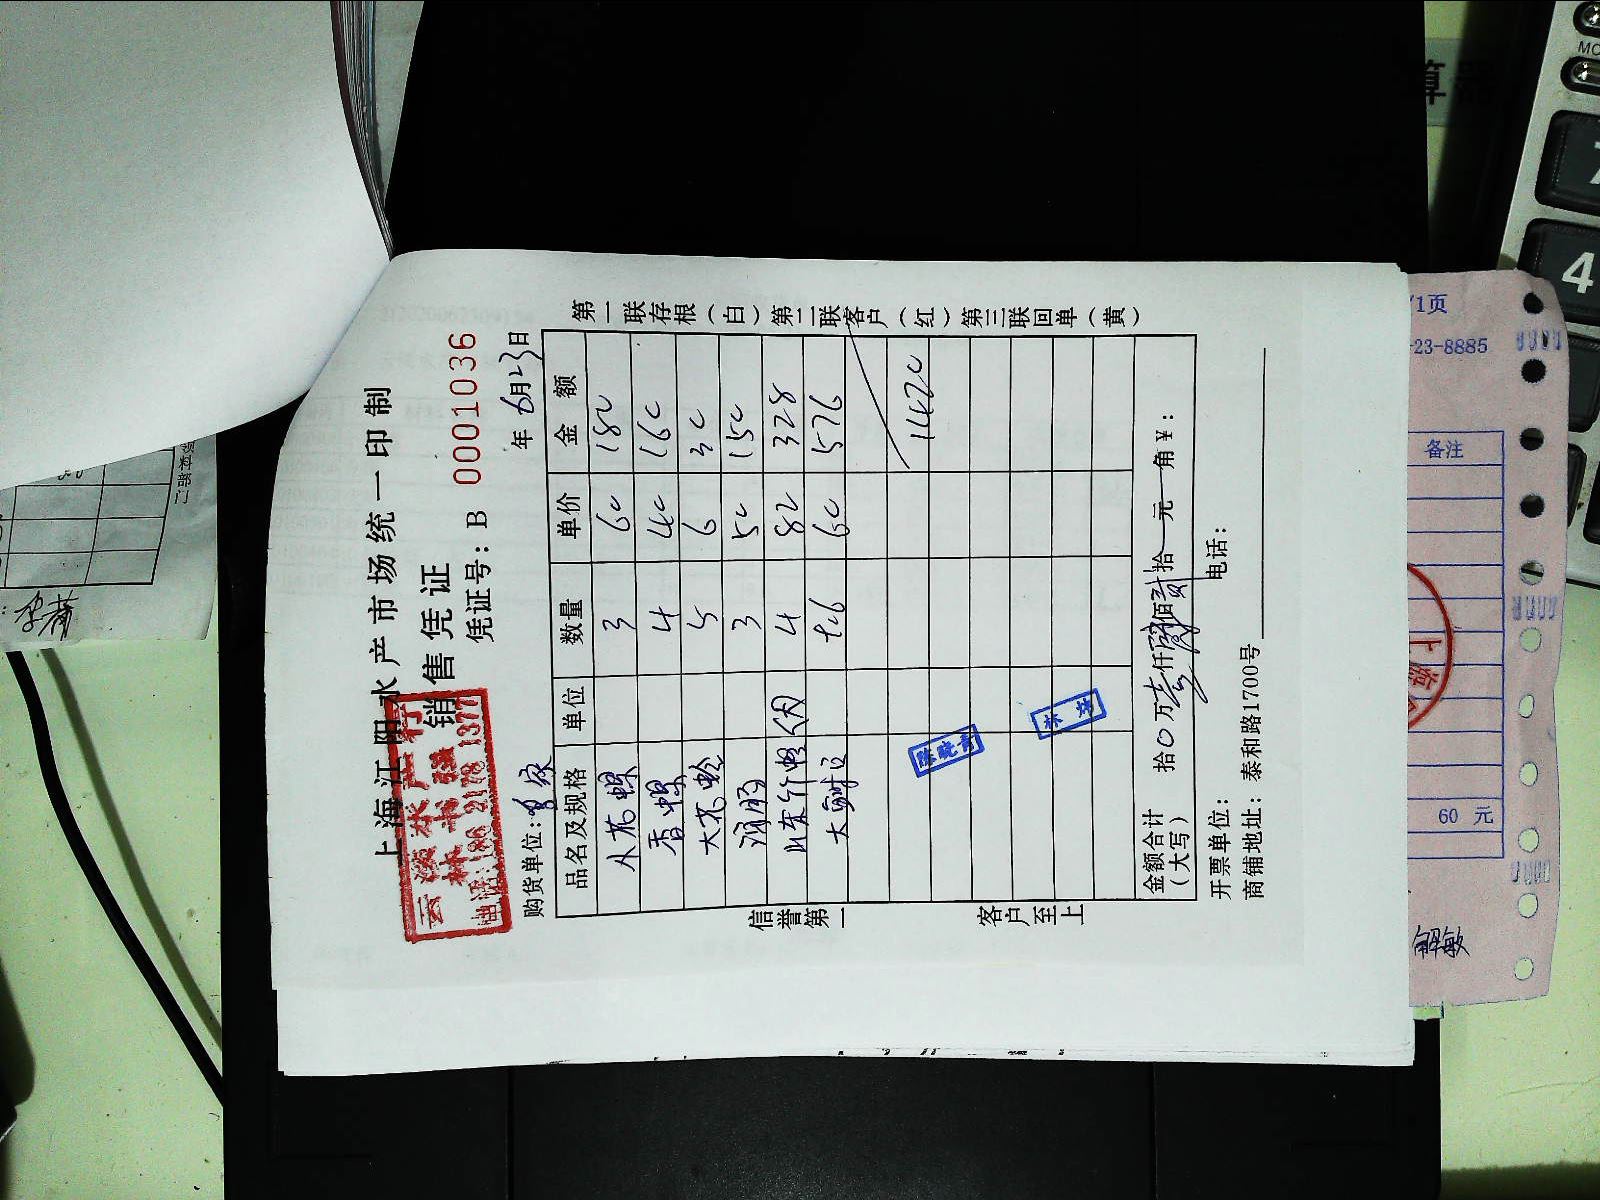 上海江阳水产市场统一印制
销售凭证
凭证号：B 0001036
云溪水产行
林书强
电话：186 2178 1377
购货单位：
年 6月23日
品名及规格 单位 数量 单价 金额
从花螺 3 60 180
香螺 4 40 160
大花蛤 5 6 30
3 50 150
山东竹蛏 4 82 328
大鲜 9.6 60 576
1420
金额合计（大写） 拾0万壹仟 佰贰拾 元 角￥：
开票单位： 电话：
商铺地址：泰和路1700号
信誉第一 客户至上
第一联存根（白）第二联客户（红）第三联回单（黄）
陈晓青
/1页
-23-8885
备注
60 元
上海
解敏
算器
4
7